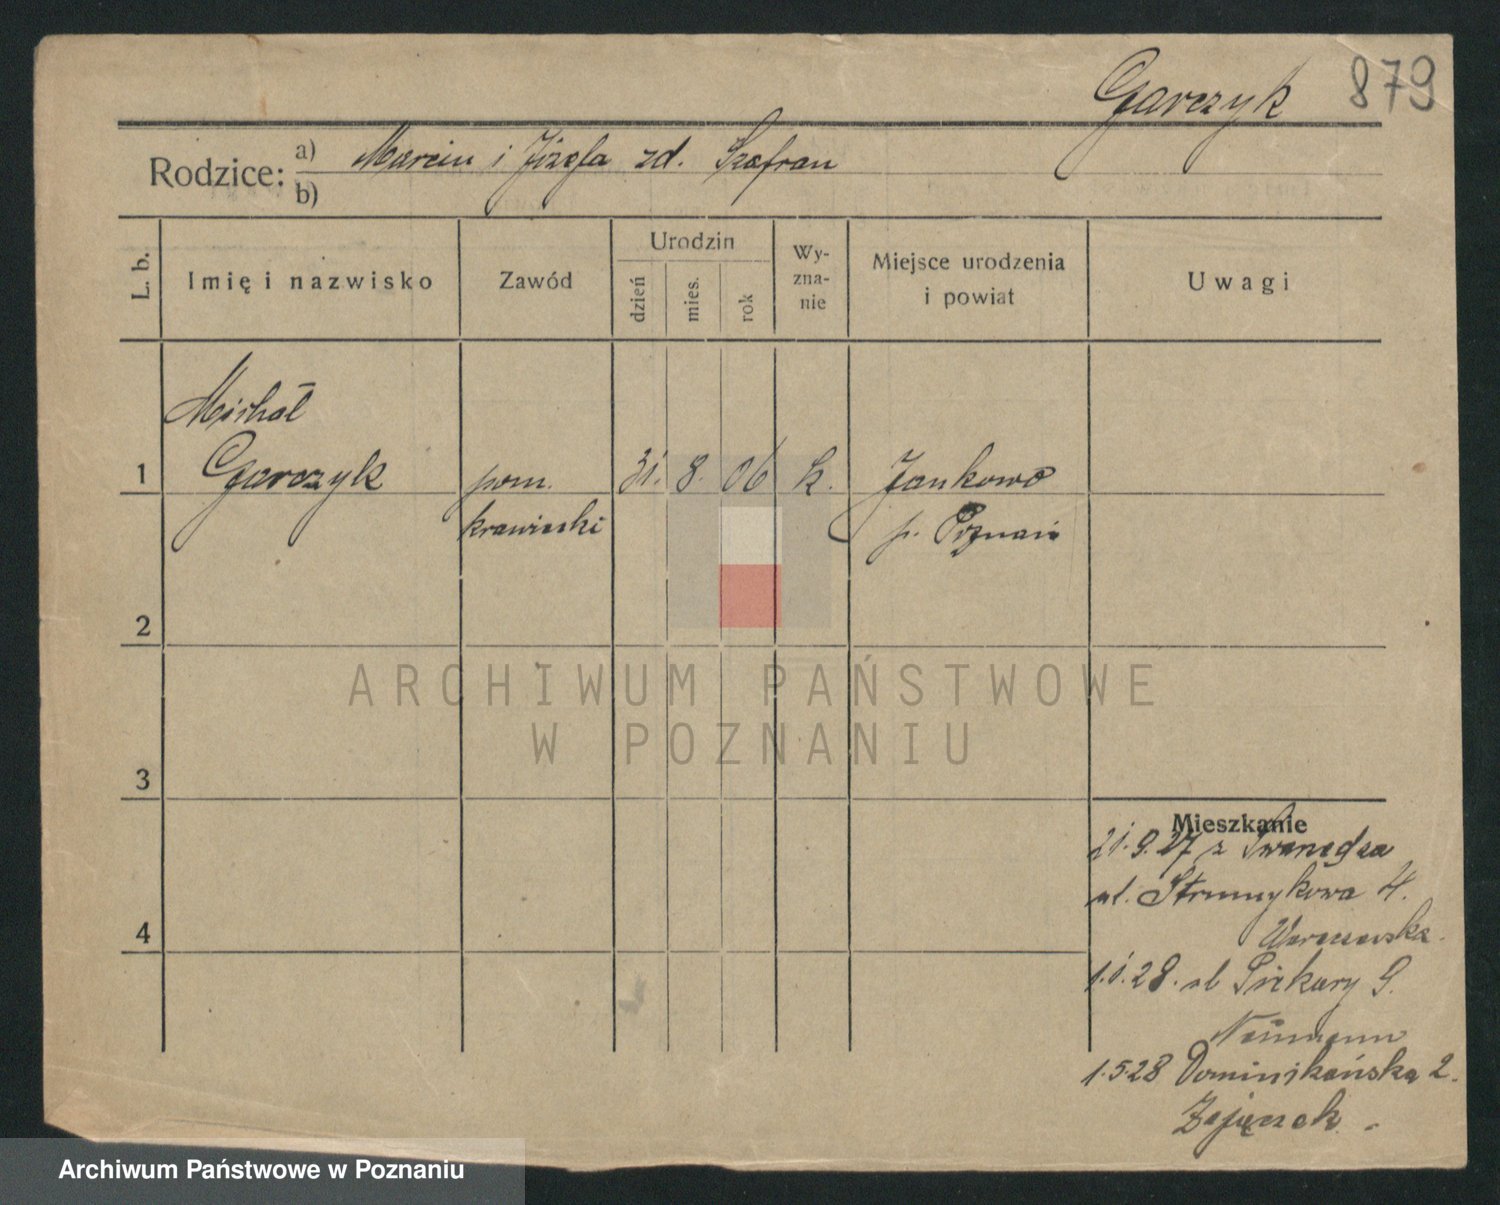 Garczyk 879
Rodzice: a) Marcin i Józefa zd. Szafran
b)
L. b.
Imię i nazwisko
Zawód
Urodzin
dzień
mies.
rok
Wy-
zna-
nie
Miejsce urodzenia
i powiat
Uwagi
Michał
1 Garczyk pom. 31. 8. 06 k. Jankowo
krawiecki p. Poznań
2
ARCHIWUM PAŃSTWOWE
W POZNANIU
3
Mieszkanie
21.9.27 z
ul. Strumykowa 4.
Warszawska.
4
1.1.28. ul Piekary 9.
Neumann
1.5.28 Dominikańska 2.
Zajączek.
Archiwum Państwowe w Poznaniu